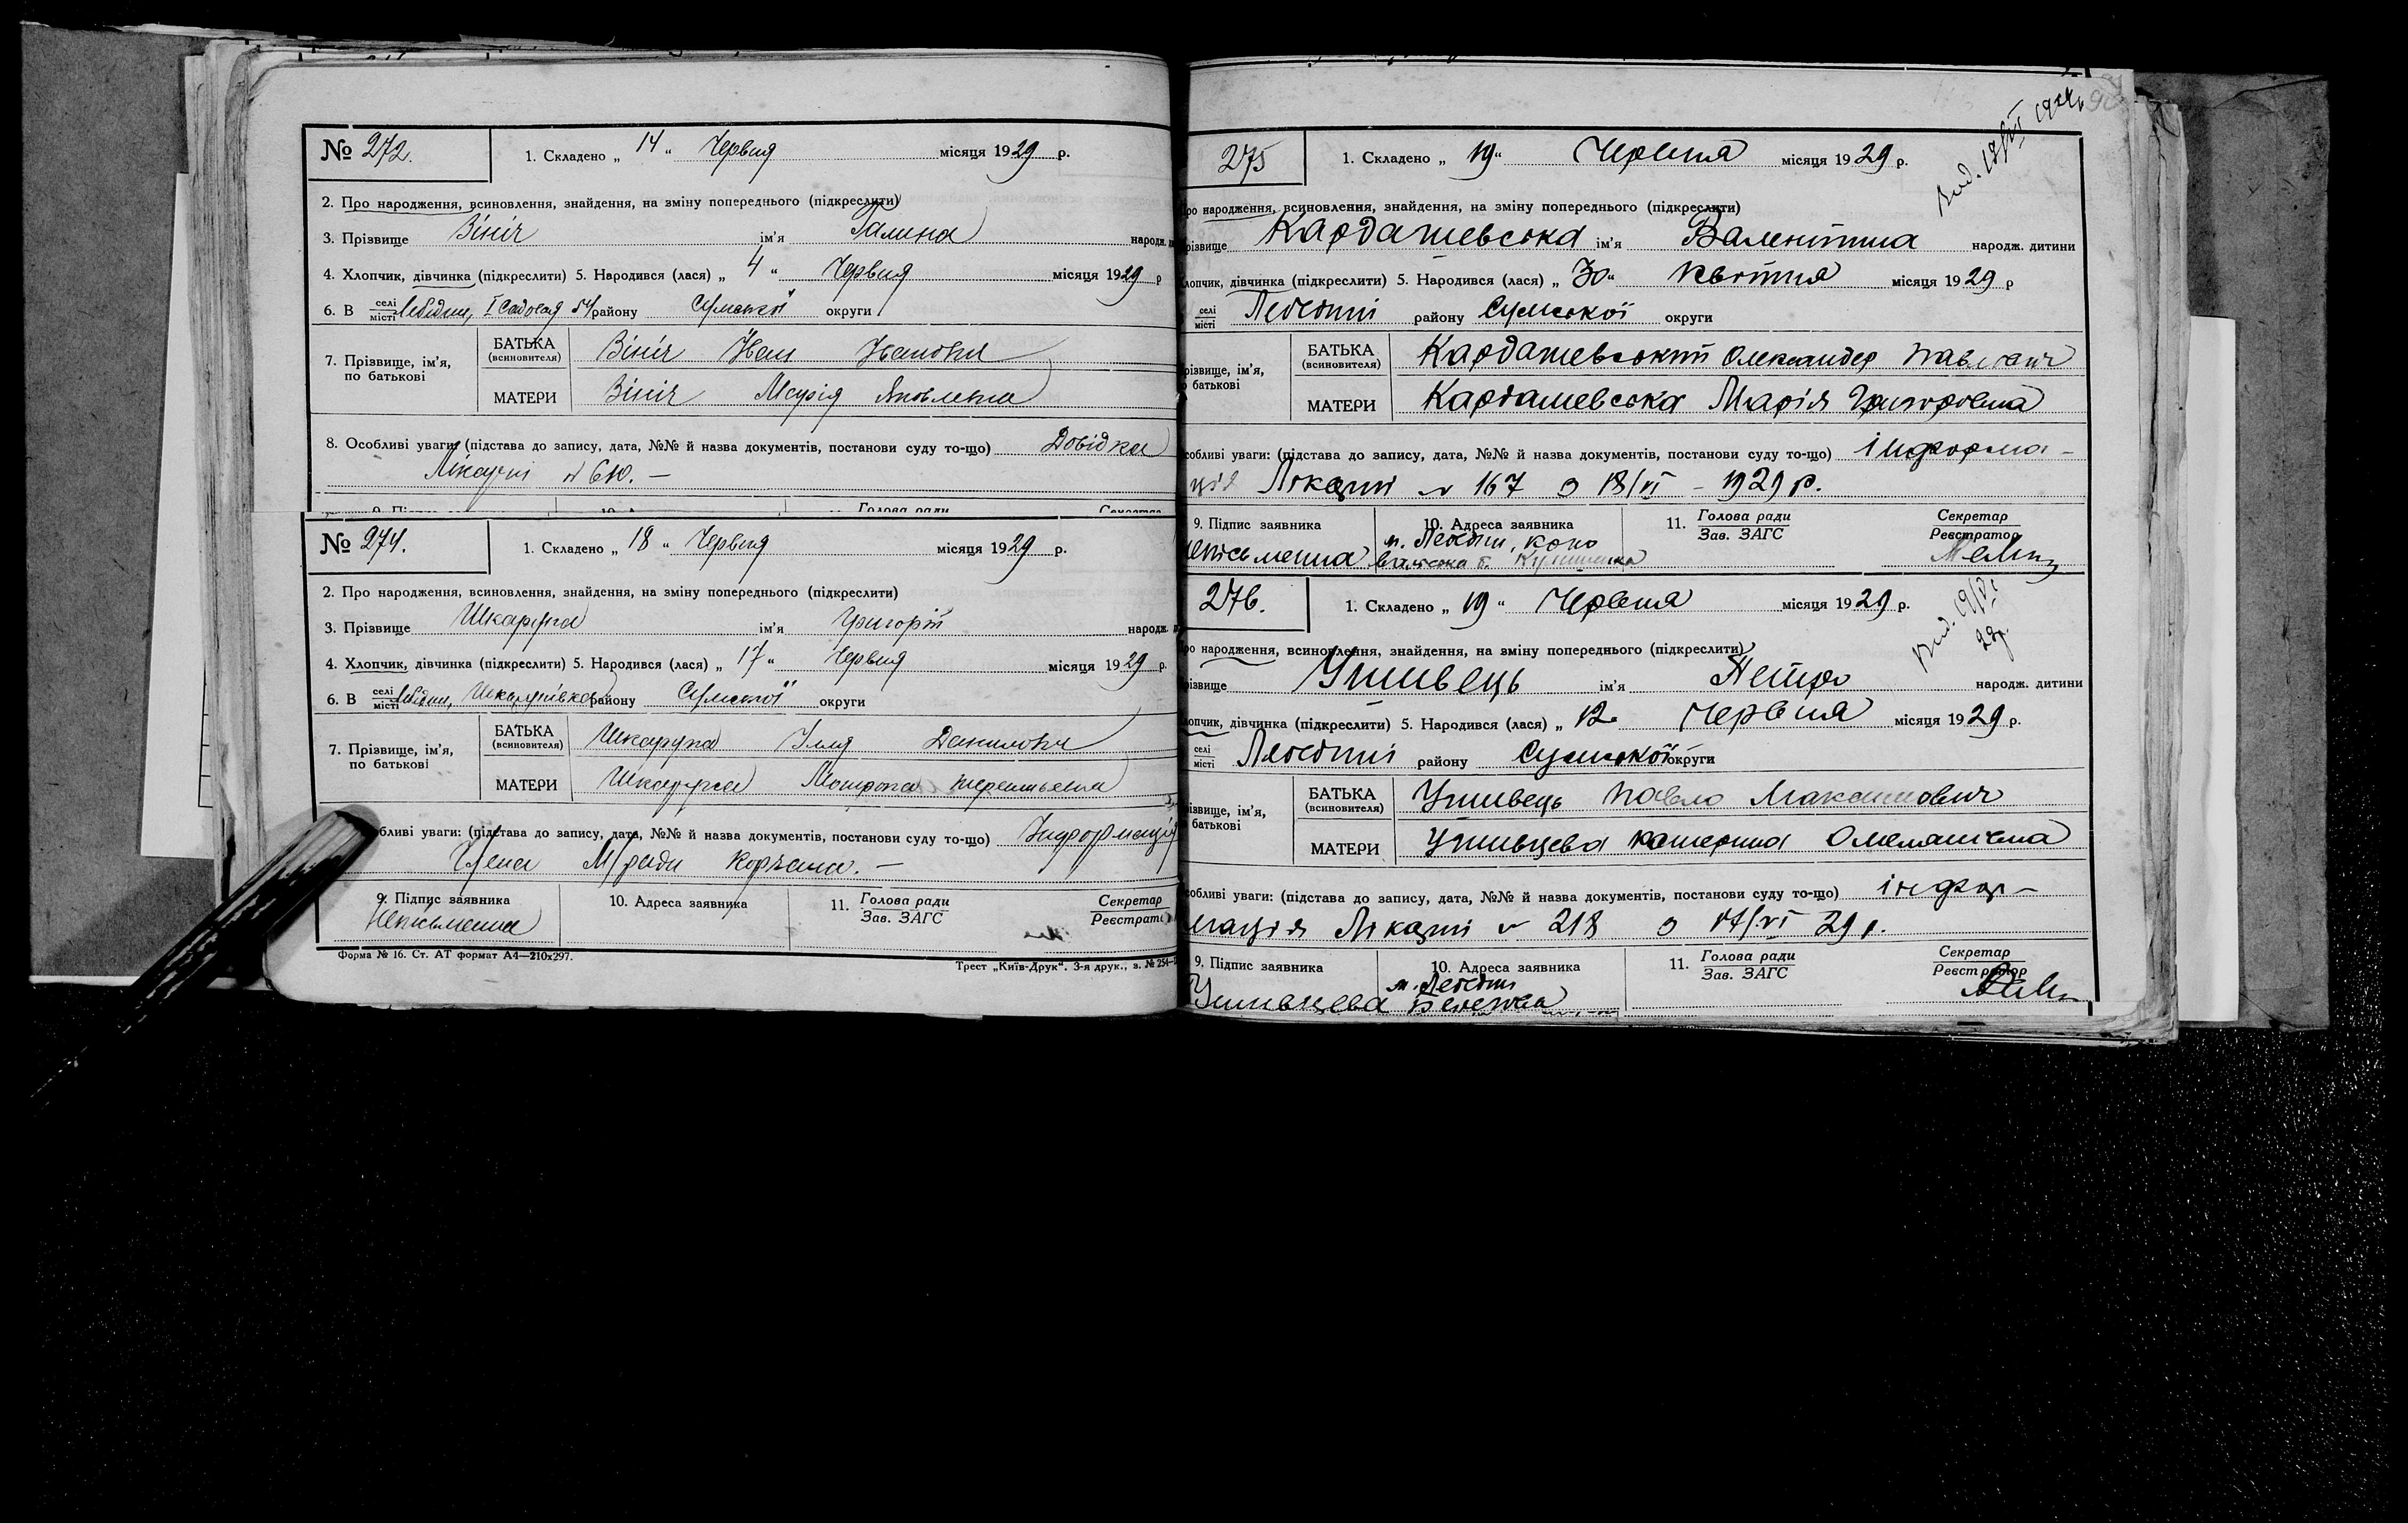 № 272.
1. Складено „ 14 “ Червня місяця 1929 р.
2. Про народження, всиновлення, знайдення, на зміну попереднього (підкреслити)
3. Прізвище Вініч ім'я Галина народж.
4. Хлопчик, дівчинка (підкреслити) 5. Народився (лася) „ 4 “ Червня місяця 1929 р
6. В селі місті Лебедин, I Садовая 54 району Сумської округи
7. Прізвище, ім'я, по батькові
БАТЬКА (всиновителя) Вініч Іван Іванович
МАТЕРИ Вініч Марія Яковлевна
8. Особливі уваги (підстава до запису, дата, №№ й назва документів, постанови суду то-що) Довідка
Лікарні №
Голова ради
№ 274.
1. Складено „ 18 “ Червня місяця 1929 р.
2. Про народження, всиновлення, знайдення, на зміну попереднього (підкреслити)
3. Прізвище Шкарупа ім'я Григорій народж.
4. Хлопчик, дівчинка (підкреслити) 5. Народився (лася) „ 17 “ Червня місяця 1929 р.
6. В селі місті Лебедин, району Сумської округи
7. Прізвище, ім'я, по батькові
БАТЬКА (всиновителя) Шкарупа Ілля Данилович
МАТЕРИ Шкарупа Мотрона
бливі уваги: (підстава до запису, дата, №№ й назва документів, постанови суду то-що) Інформація
Члена М/ради Корчана. —
9. Підпис заявника 10. Адреса заявника 11. Голова ради Зав. ЗАГС Секретар Реєстрато
Неписьменна
Форма № 16. Ст. АТ формат А4—210x297.
Трест „Київ-Друк“. 3-я друк., з. № 254
275
1. Складено „ 19 “ Червня місяця 1929 р.
ро народження, всиновлення, знайдення, на зміну попереднього (підкреслити)
різвище Кардашевська ім'я Валентина народж. дитини
лопчик, дівчинка (підкреслити) 5. Народився (лася) „ 30 “ Квітня місяця 1929 р
селі місті Лебедині району Сумської округи
різвище, ім'я, батькові
БАТЬКА (всиновителя) Кардашевський Олександер Павлович
МАТЕРИ Кардашевська Марія Григоровна
собливі уваги: (підстава до запису, дата, №№ й назва документів, постанови суду то-що) Інформа-
ція Лікарні № 167 з 18/VI – 1929 р.
9. Підпис заявника 10. Адреса заявника 11. Голова ради Зав. ЗАГС Секретар Реєстратор
неписьменна м. Лебедин,
276.
1. Складено „ 19 “ Червня місяця 1929 р.
ро народження, всиновлення, знайдення, на зміну попереднього (підкреслити)
різвище Ушивець ім'я Петро народж. дитини
лопчик, дівчинка (підкреслити) 5. Народився (лася) „ 12 Червня місяця 1929 р.
селі місті Лебедині району Сумської округи
різвище, ім'я, батькові
БАТЬКА (всиновителя) Ушивець Павло Максимович
МАТЕРИ Ушивцева Катерина Омелянівна
собливі уваги: (підстава до запису, дата, №№ й назва документів, постанови суду то-що) інфор-
мація Лікарні № 218 з 17/VI 29 р.
9. Підпис заявника 10. Адреса заявника 11. Голова ради Зав. ЗАГС Секретар Реєстратор
Ушивцева м. Лебедин